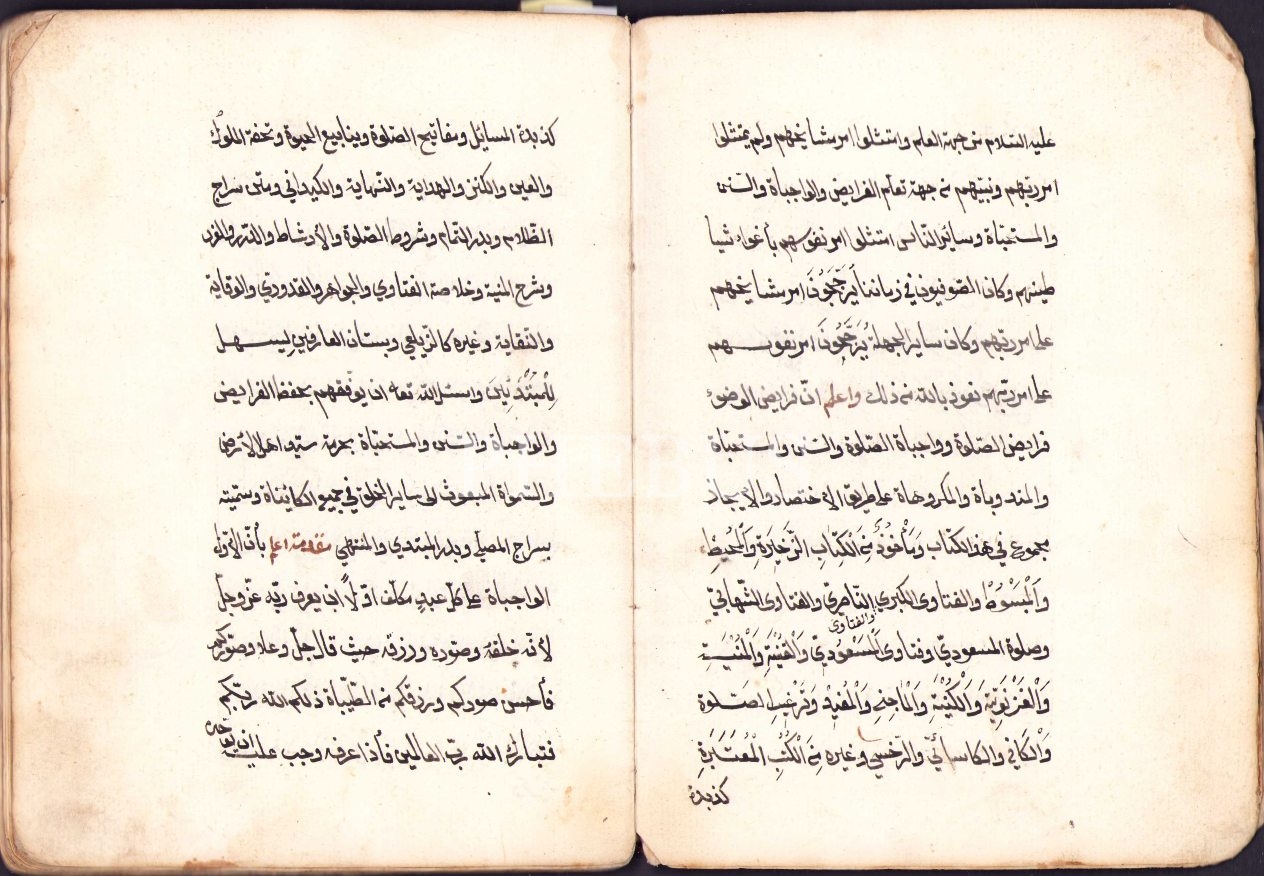 عليه السّلام من جهة العلم وامتثلوا امر مشايخهم ولم يمتثلوا
امر ربّهم ونبيّهم من جهة تعلّم الفرايض والواجباة والسّنن
والمستحبّاة وساير النّاس امتثلوا امر نفوسهم بأغواء شيا
طينهم وكان الصّوفيون في زماننا يُرَجِّحُونَ امر مشايخهم
على امر ربّهم وكان ساير الجهلة يُرَجِّحُونَ امر نفوسهم
على امر ربّهم نعوذ بالله من ذلك واعلم انّ فرايض الوضوء
فرايض الصّلوة وواجباة الصّلوة والسّنن والمستحبّاة
والمندوباة والمكروهاة على طريق الاختصار والايجاز
مجموع في هذا الكتاب وَمَأْخُوذٌ مِنَ الْكِتَابِ الذَّخَايِرَةِ وَالْمُحِيطِ
وَالْمَبْسُوطِ والفتاوى الكبرى النّاصري والفتاوى الشّهابيّ
والفتاوى
وصلوة المسعوديّ وفتاوى الْمَسْعُودِيّ وَالْقُنْيَةِ وَالْمُنْيَةِ
وَالْغَزْنَوِيَّةِ وَالْمُفِيدِ وَتَرْغِيبِ الصَّلوة
وَالْكَافِي والكاسانيّ والسّرخسي وغيره مِنَ الْكُتُبِ الْمُعْتَبَرَةِ
كذبدة
كذبدة المسايل ومفاتيح الصّلوة وينابيع الحيوة وتحفة الملوك
والعين والكنز والهداية والنّهاية والكيداني ومتن سراج
الظّلام وبدر التمام وشروط الصّلوة والأرشاط والدّرر والغرر
وشرح المنية وخلاصة الفتاوي والجواهر والقدوري والوقاية
والنّقاية وغيره كالزّيلعي وبستان العارفين ليسهل
لِلْمُبْتَدِئِينَ واسئل الله تعالى ان يوفّقهم بحفظ الفرايض
والواجباة والسّنن والمستحبّاة بحرمة سيّد اهل الأرض
والسّمواة المبعوث الى ساير الخلق في جميع الكائناة وسمّيته
بسراج المصلّي وبدر المبتدي والمنتهي مقدمة اعلم بأنّ الاوّل
الواجباة على كلّ عبدٍ مكلّف اوّلاً ان يعرف ربّه عزّ وجلّ
لأنّه خلقه وصوّره ورزقه حيث قال جلّ وعلا وصوّركم
فأحسن صوركم ورزقكم من الطّيّباة ذلكم الله ربّكم
فتبارك الله ربّ العالمين فأذا عرفه وجب عليه ان يوحّده